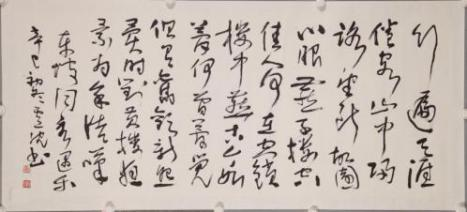 行遍天涯
倦客山中归
路望断故园
心眼燕子楼空
佳人何在空锁
楼中燕古今如
梦何曾梦觉
但有旧欢新怨
异时对黄楼夜
景为余浩叹
东坡词永遇乐
辛巳初冬书